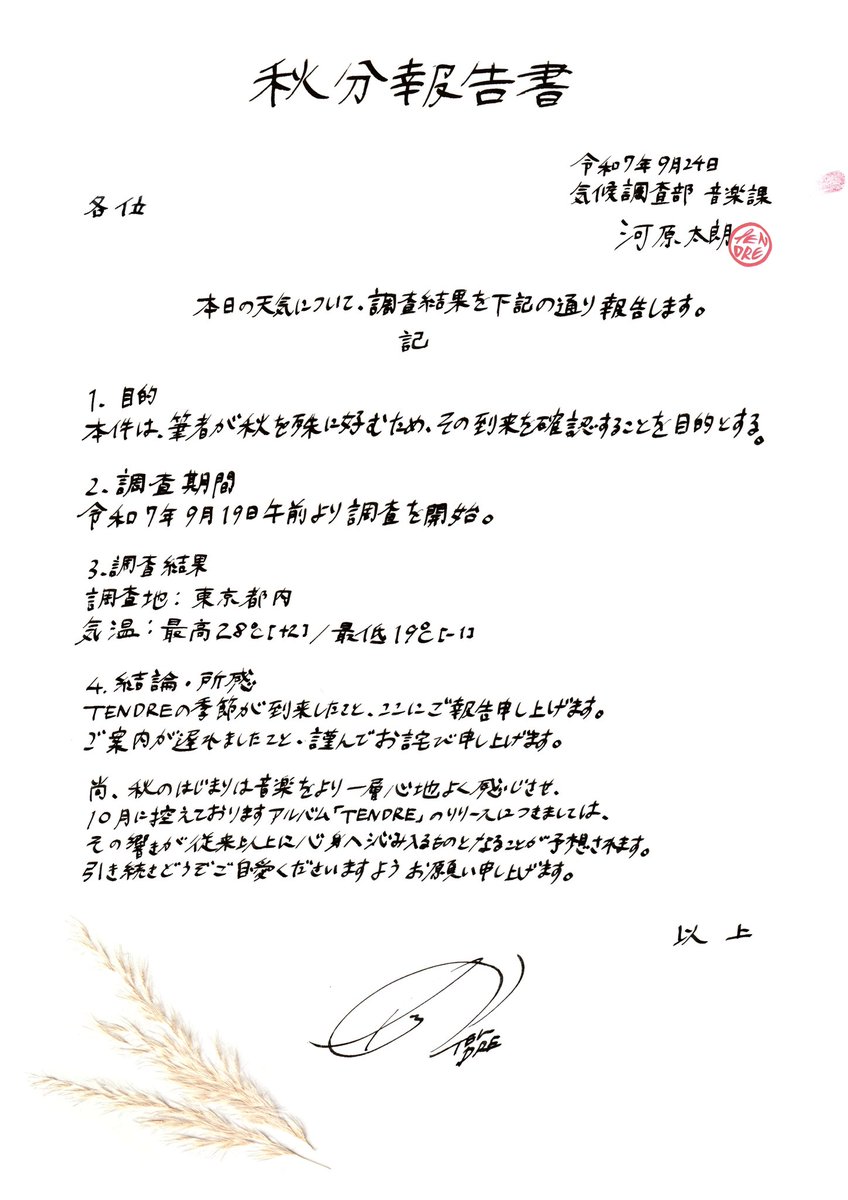 秋分報告書
令和7年9月24日
気候調査部 音楽課
各位
河原太朗
TENDRE
本日の天気について、調査結果を下記の通り報告します。
記
1. 目的
本件は、筆者が秋を殊に好むため、その到来を確認することを目的とする。
2. 調査期間
令和7年9月19日午前より調査を開始。
3. 調査結果
調査地：東京都内
気温：最高28℃[+2]/最低19℃[-1]
4. 結論・所感
TENDREの季節が到来したこと、ここにご報告申し上げます。
ご案内が遅れましたこと、謹んでお詫び申し上げます。
尚、秋のはじまりは音楽をより一層心地よく感じさせ、
10月に控えておりますアルバム「TENDRE」のリリースにつきましては、
その響きが従来以上に心身へ沁み入るものとなることが予想されます。
引き続きどうぞご自愛くださいますようお願い申し上げます。
以上
TENDRE